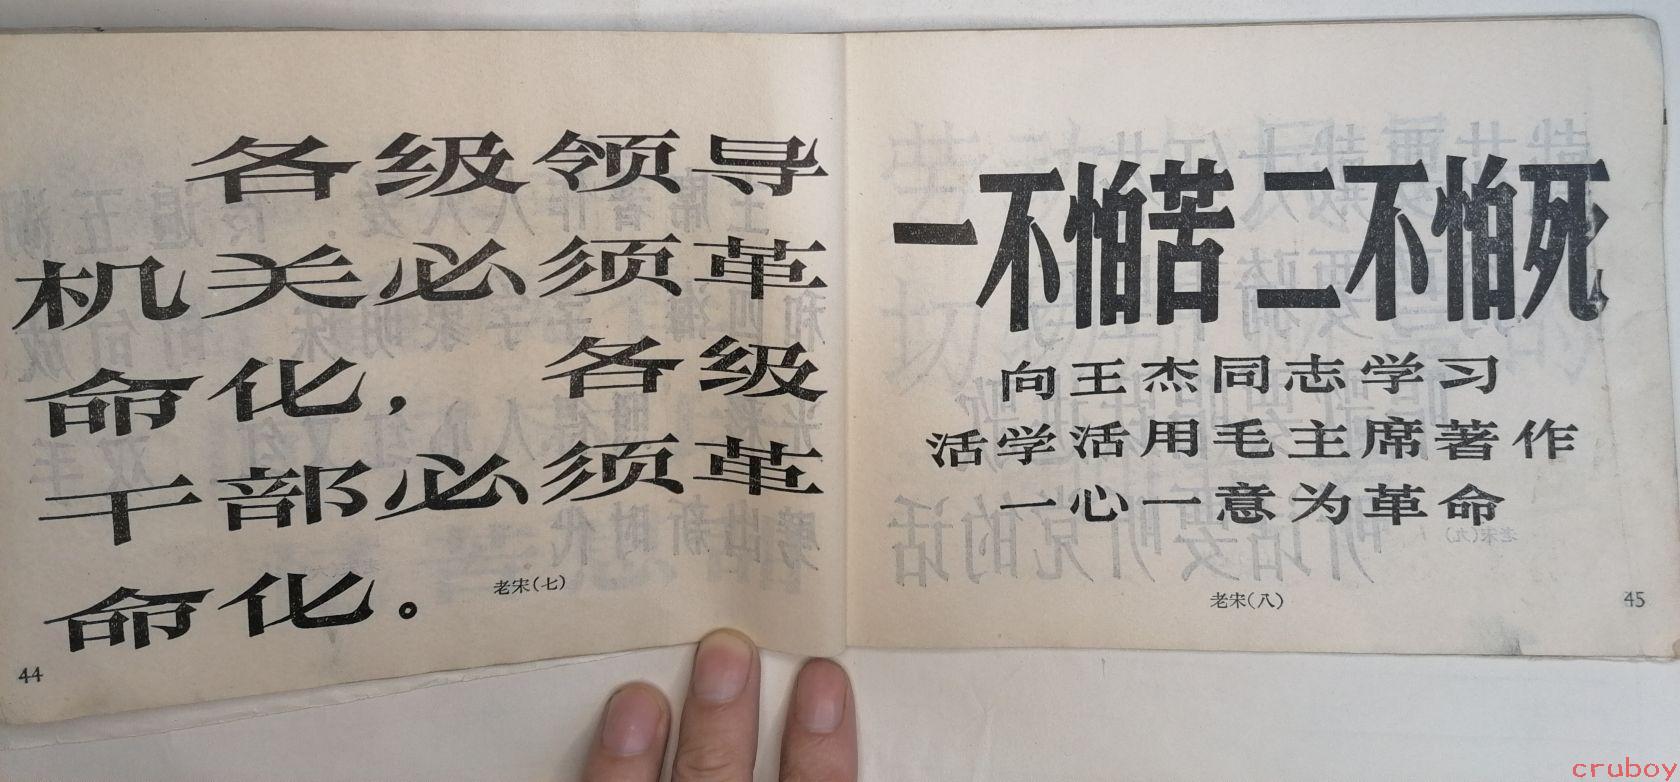 各级领导
机关必须革
命化，各级
干部必须革
命化。
老宋(七)
44
一不怕苦 二不怕死
向王杰同志学习
活学活用毛主席著作
一心一意为革命
老宋(八)
45
cruboy